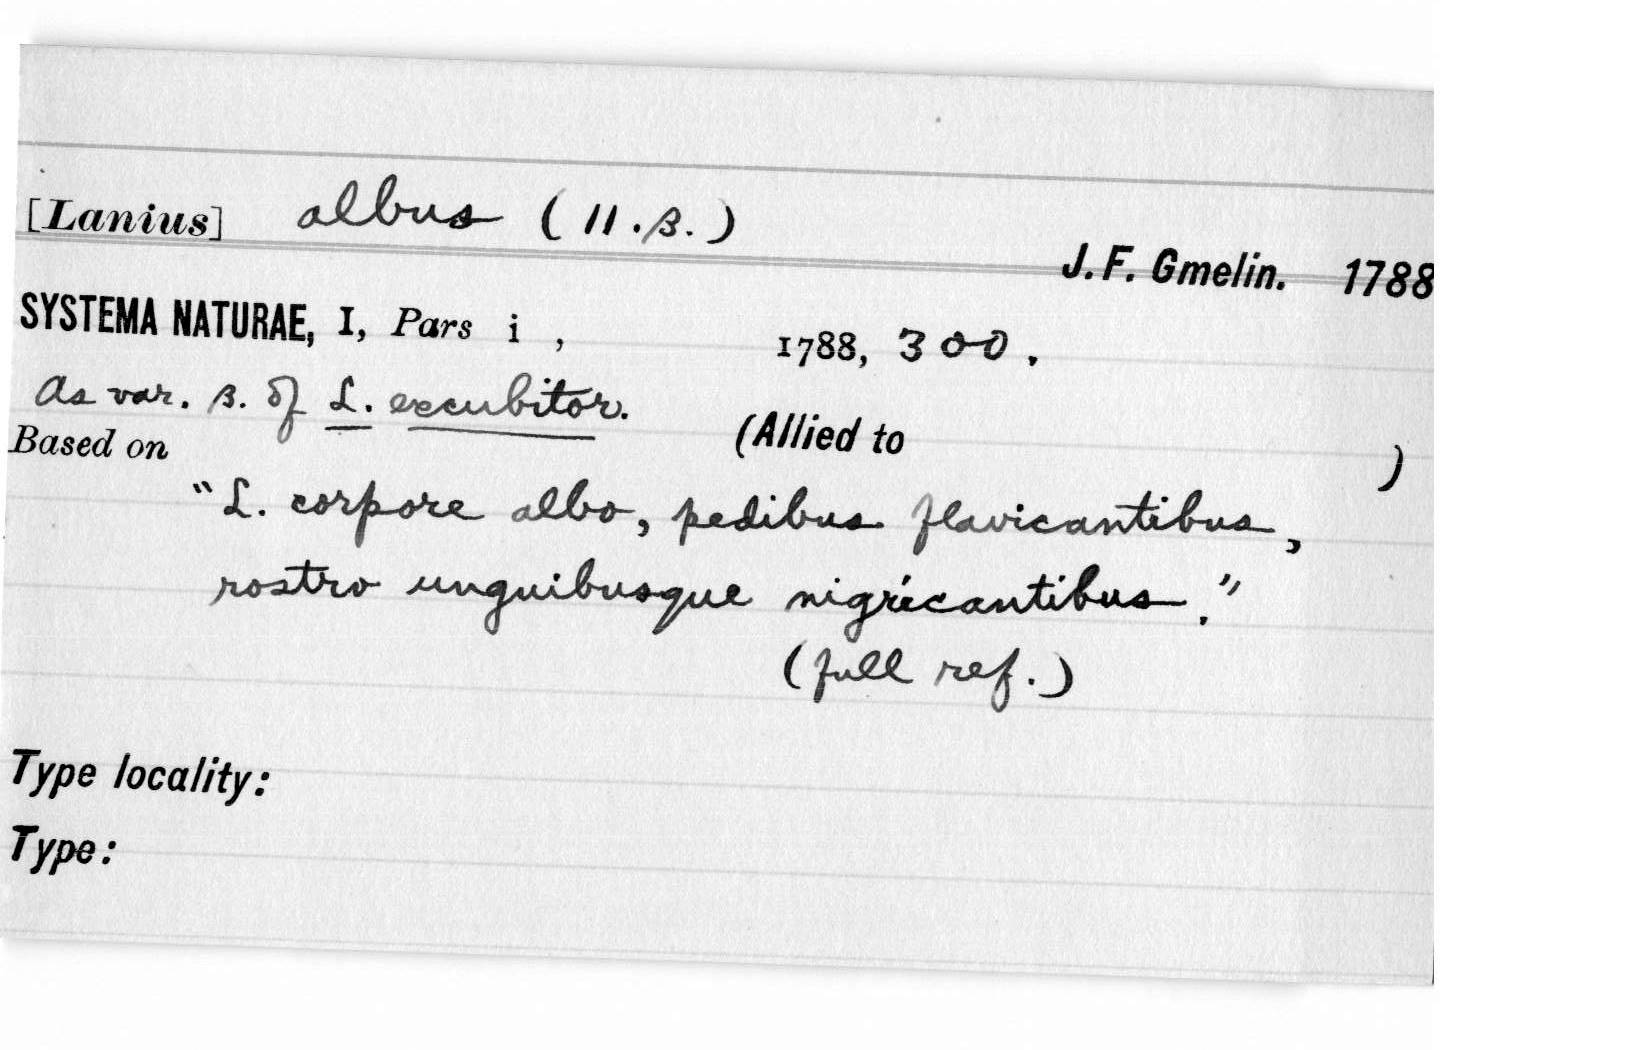 [Lanius] albus (11.β.)
J. F. Gmelin. 1788
SYSTEMA NATURAE, I, Pars i , 1788, 300.
As var. β. of L. excubitor.
Based on (Allied to )
"L. corpore albo, pedibus flavicantibus,
rostro unguibusque nigricantibus."
(full ref.)
Type locality:
Type: